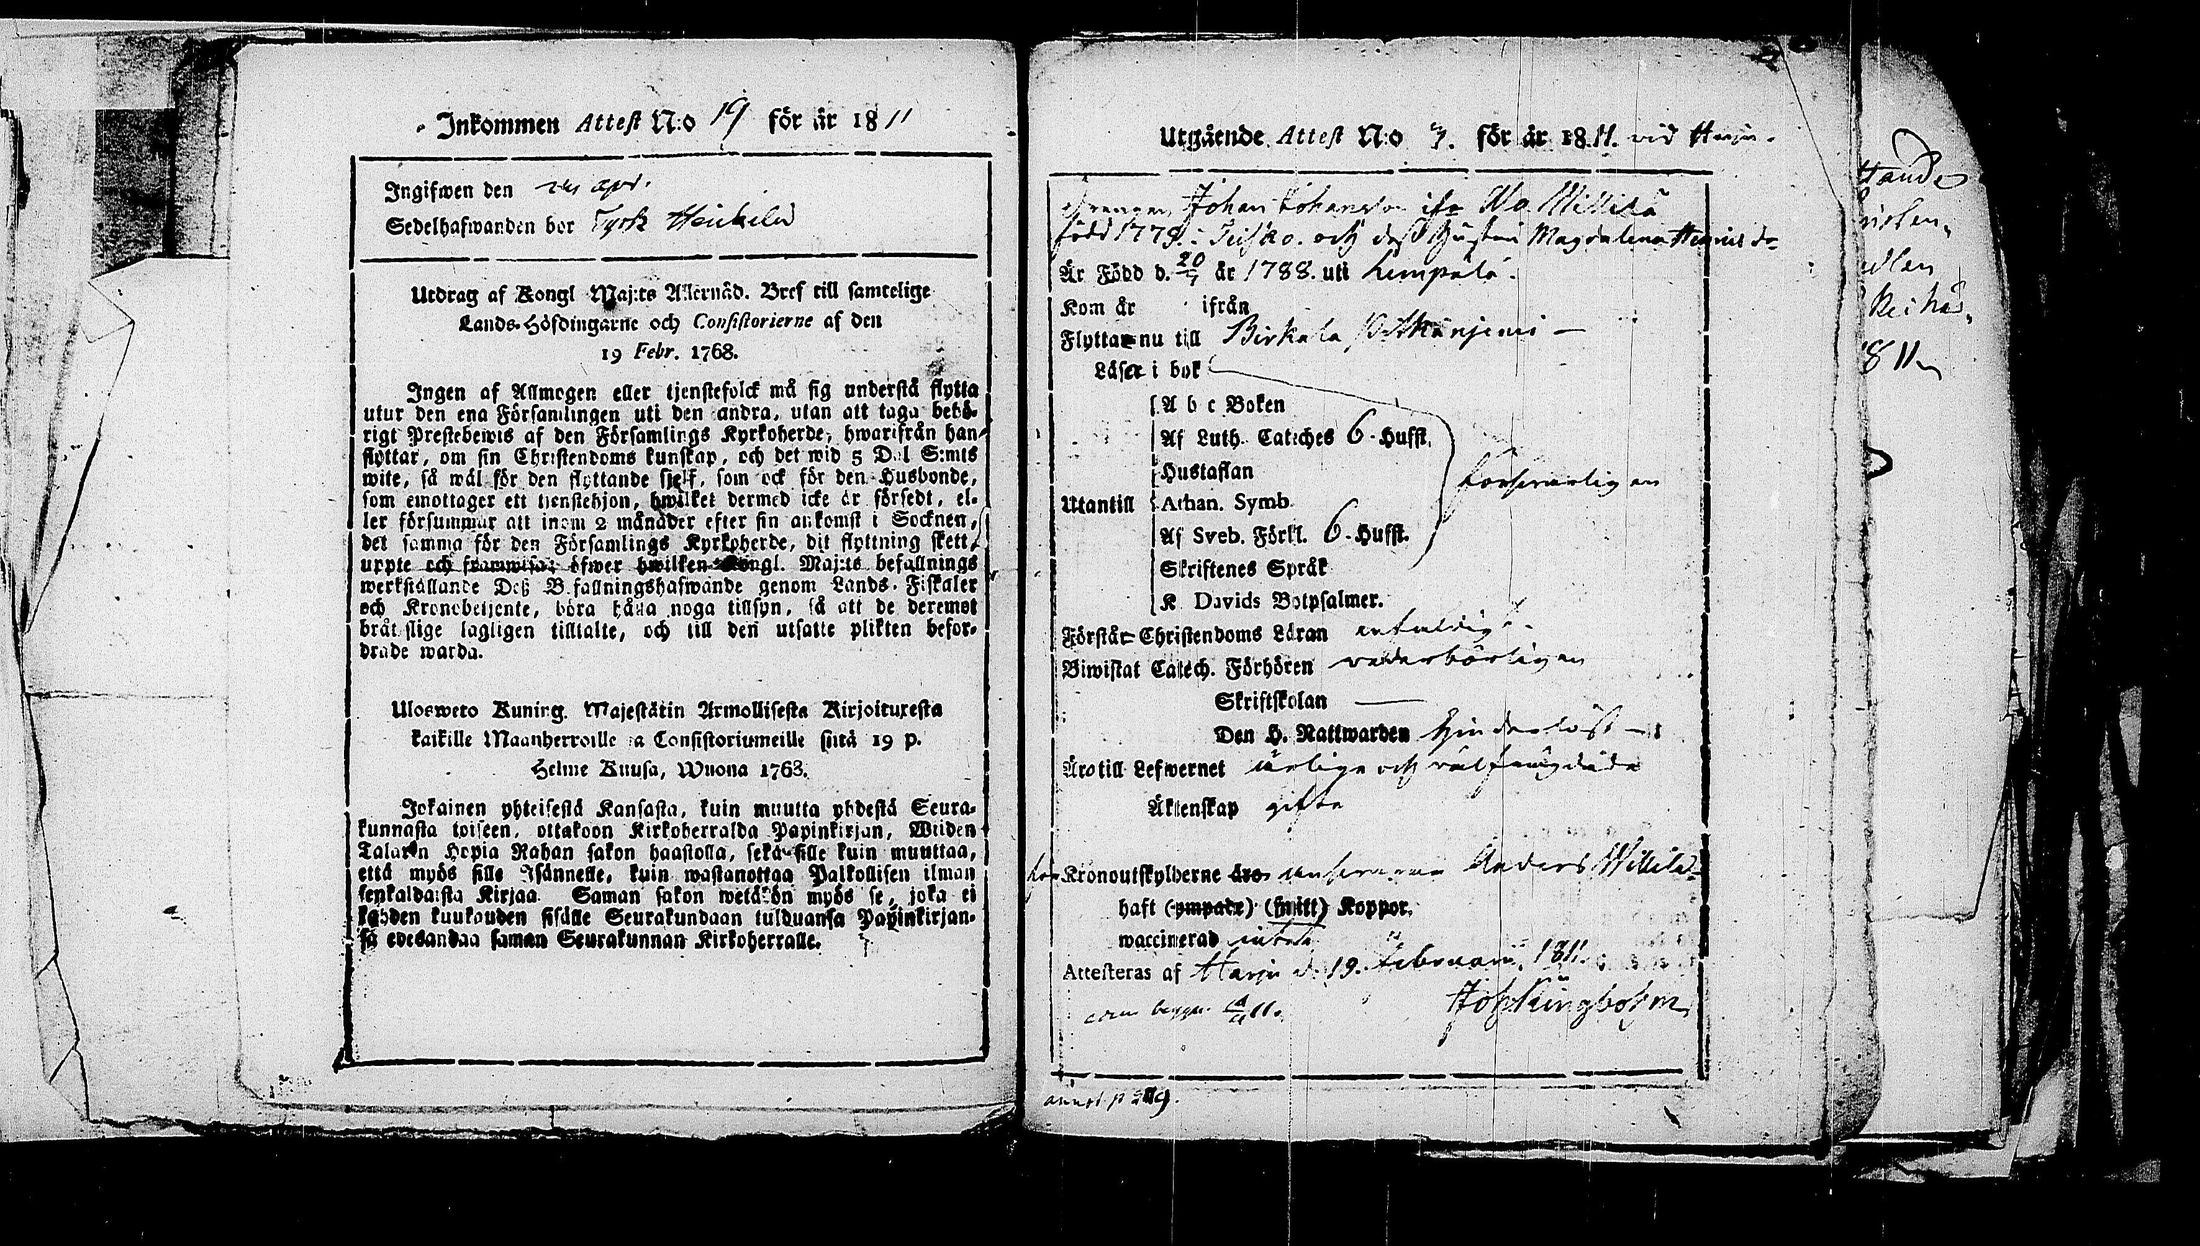 Inkommen Attest N:o 19 för år 1811
Ingifwen den apr.
Sedelhafwanden bor Tyrk Heickilä
Utdrag af Kongl Maj:ts Allernåd. Bref till samtelige
Lands-Höfdingarne och Consistorierne af den
19 Febr. 1768.
Ingen af Allmogen eller tjenstefolck må sig understå flytta
utur den ena Församlingen uti den andra, utan att taga behö-
rigt Prestebewis af den Församlings Kyrkoherde, hwarifrån han
flyttar, om sin Christendoms kunskap, och det wid 5 Dal S:mts
wite, så wäl för den flyttande sjelf, som ock för den Husbonde,
som emottager ett tjenstehjon, hwilket dermed icke är försedt, el-
ler försummar att inom 2 månader efter sin ankomst i Socknen,
det samma för den Församlings Kyrkoherde, dit flyttning skett,
uppte och framwisa; öfwer hwilken Kongl. Maj:ts befallnings
werkställande Deß Befallningshafwande genom Lands-Fiskaler
och Kronobetjente, böra hålla noga tillsyn, så att de deremot
bråtslige lagligen tilltalte, och till den utsatte plikten befor-
drade warda.
Ulosweto Kuning. Majestätin Armollisesta Kirjoituxesta
kaikille Maanherroille ja Consistoriumeille siitä 19 p.
Helme Kuusa, Wuona 1768.
Jokainen yhteisestä Kansasta, kuin muutta yhdestä Seura-
kunnasta toiseen, ottakoon Kirkoherralda Papinkirjan, Wiiden
Talarin Hopia Rahan sakon haastolla, sekä sille kuin muuttaa,
että myös sille Isännelle, kuin wastanottaa Palkollisen ilman
senkaldaista Kirjaa. Saman sakon wetäkön myös se, joka ei
kahden kuukauden sisälle Seurakundaan tulduansa Papinkirjan-
sa edesandaa saman Seurakunnan Kirkoherralle.
Utgående Attest N:o 3. för år 1811. vid Harju.
Drengen Johan Johansson ifr. Willilä
född 1779. i och deß hustru Magdalena Henricsdr
Är Född d. 20/7 år 1788. uti Lempälä.
Kom år ifrån
Flyttar nu till Birkala Pitkänjemi —
Läser i bok
A b c Boken
Af Luth. Cateches 6. Hufst.
Hustaflan
försvarligen
Utantill Athan. Symb.
Af Sveb. Förkl. 6. Hufst.
Skriftenes Språk
K. Davids Botpsalmer.
Förstår Christendoms Läran enfaldigt.
Biwistat Catech. Förhören vederbörligen
Skriftskolan —
Den H. Nattwarden hinderlöst —
Äro till Lefwernet ärlige och välfrägdade
Äktenskap gifte
för Kronoutskylderne äro ansvarar Anders Willilä
haft (ympade) (smitt) Koppor.
waccinerad
Attesteras af Harju d. 19. Februarii 1811.
Joh Kingbohm
11.
annot p
Hande
1811